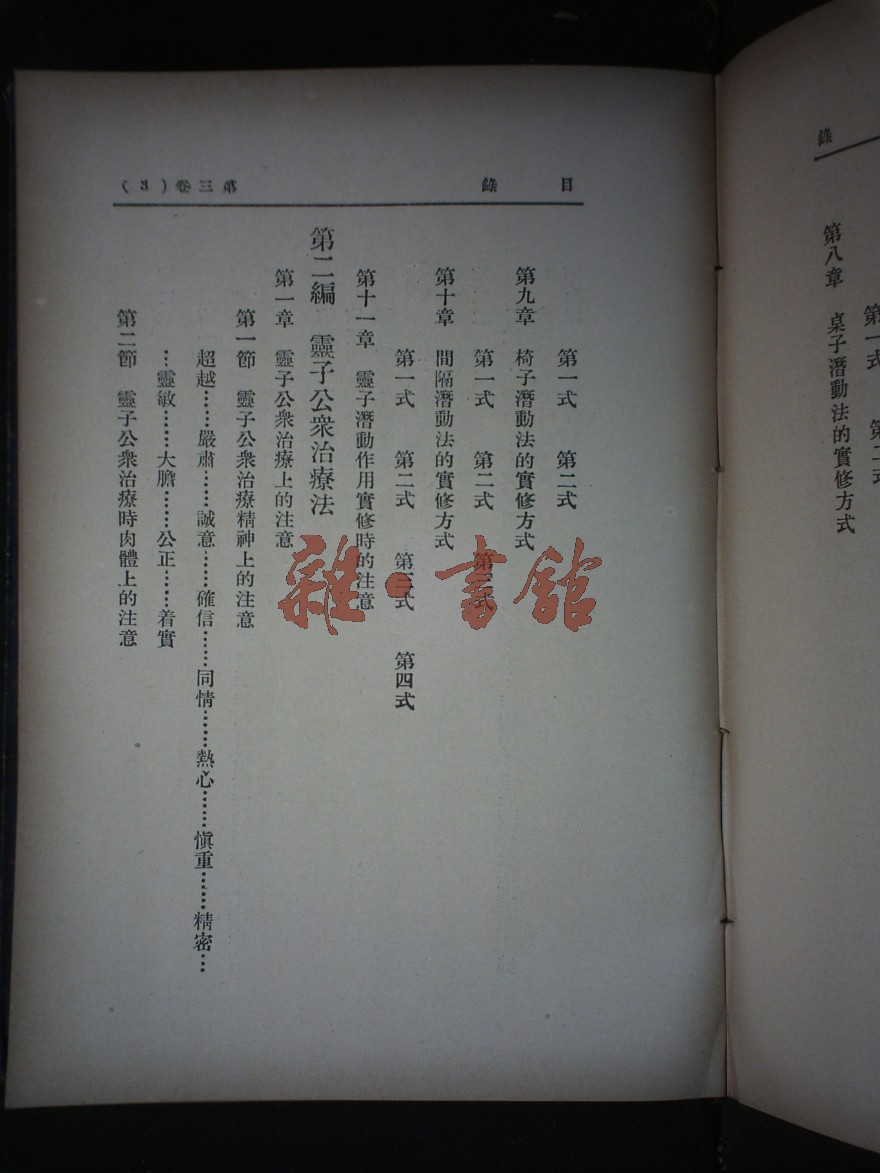 錄
第八章　桌子潛動法的實修方式
第一式
目錄　第三卷(3)
第一式　第二式
第九章　椅子潛動法的實修方式
第一式　第二式　第三式
第十章　間隔潛動法的實修方式
第一式　第二式　第三式　第四式
第十一章　靈子潛動作用實修時的注意
第二編　靈子公衆治療法
第一章　靈子公衆治療上的注意
第一節　靈子公衆治療精神上的注意
超越……嚴肅……誠意……確信……同情……熱心……愼重……精密…
…靈敏……大膽……公正……着實
第二節　靈子公衆治療時肉體上的注意
雜·書館